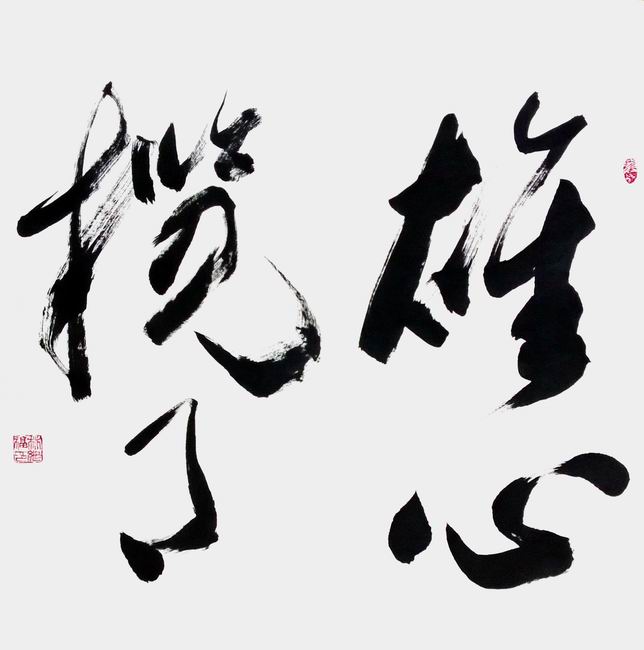 雄心
揽月